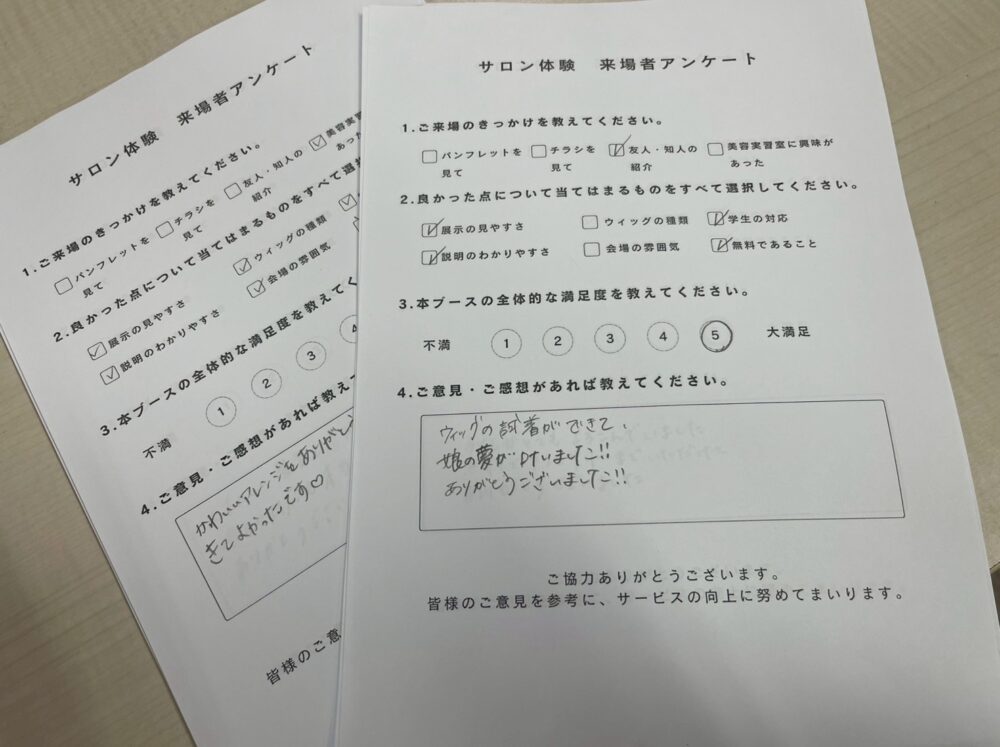 サロン体験 来場者アンケート
1.ご来場のきっかけを教えてください。
パンフレットを見て
チラシを見て
友人・知人の紹介
美容実習室に興味があった
2.良かった点について当てはまるものをすべて選択してください。
展示の見やすさ
ウィッグの種類
学生の対応
説明のわかりやすさ
会場の雰囲気
無料であること
3.本ブースの全体的な満足度を教えてください。
不満 1 2 3 4 5 大満足
4.ご意見・ご感想があれば教えてください。
ウィッグの試着ができて、
娘の夢が叶いました!!
ありがとうございました!!
ご協力ありがとうございます。
皆様のご意見を参考に、サービスの向上に努めてまいります。
サロン体験 来場者アンケート
1.ご来場のきっかけを教えてください。
パンフレットを見て
チラシを見て
友人・知人の紹介
美容実習
あった
2.良かった点について当てはまるものをすべて選択
展示の見やすさ
ウィッグの種類
説明のわかりやすさ
会場の雰囲気
3.本ブースの全体的な満足度を教えてく
不満 1 2 3 4
4.ご意見・ご感想があれば教えて
かわいいアレンジをありがと
きてよかったです♡
皆様のご意